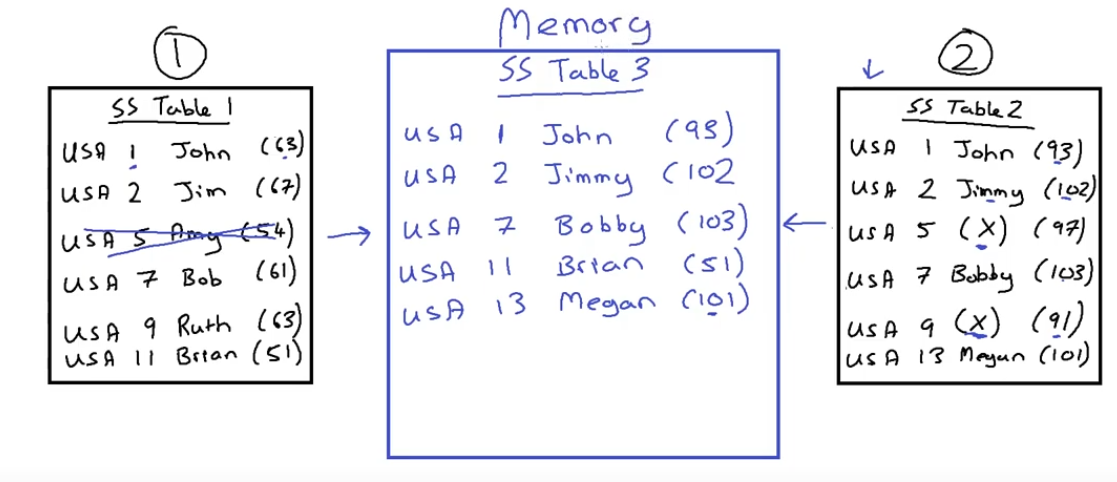 Memory
1
SS Table 1
USA 1 John (63)
USA 2 Jim (67)
USA 5 Amy (54)
USA 7 Bob (61)
USA 9 Ruth (63)
USA 11 Brian (51)
SS Table 3
USA 1 John (93)
USA 2 Jimmy (102
USA 7 Bobby (103)
USA 11 Brian (51)
USA 13 Megan (101)
2
SS Table 2
USA 1 John (93)
USA 2 Jimmy (102)
USA 5 (X) (97)
USA 7 Bobby (103)
USA 9 (X) (91)
USA 13 Megan (101)